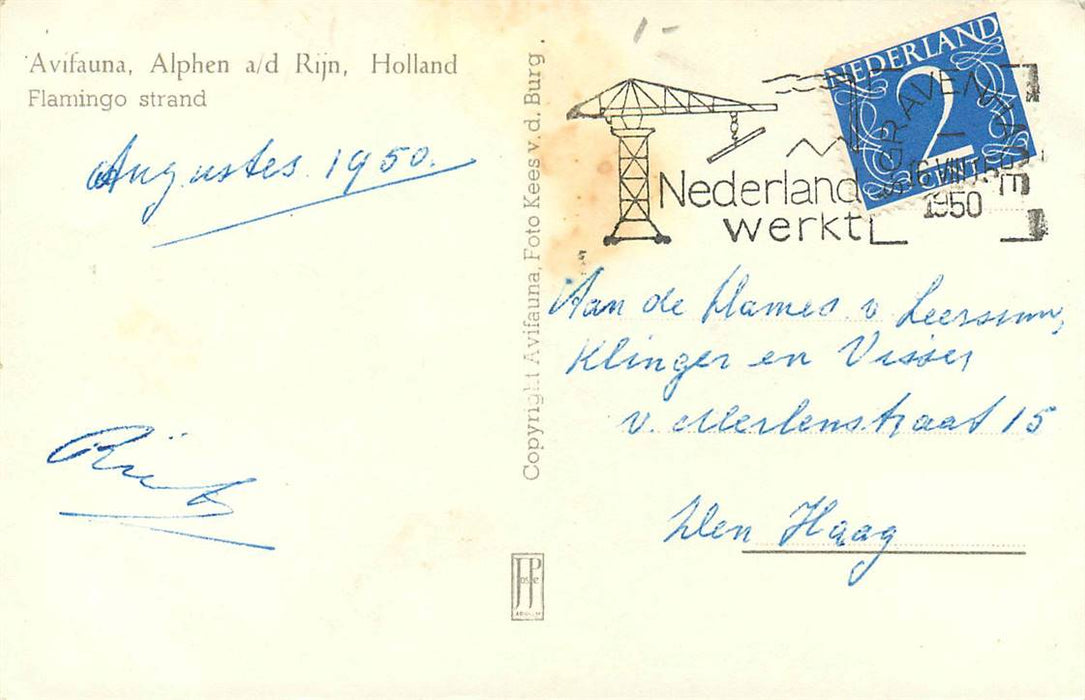 Avifauna, Alphen a/d Rijn, Holland
Flamingo strand
Augustes 1950.
Copyright Avifauna, Foto Kees v. d. Burg.
1-
NEDERLAND
2
CENT
'S GRAVENHAGE
16 VIII
1950
Nederland
werkt
Aan de Dames v. Leerssum,
Klinger en Visser
v. Merlenstraat 15
Den Haag
JosPé
ARNHEM